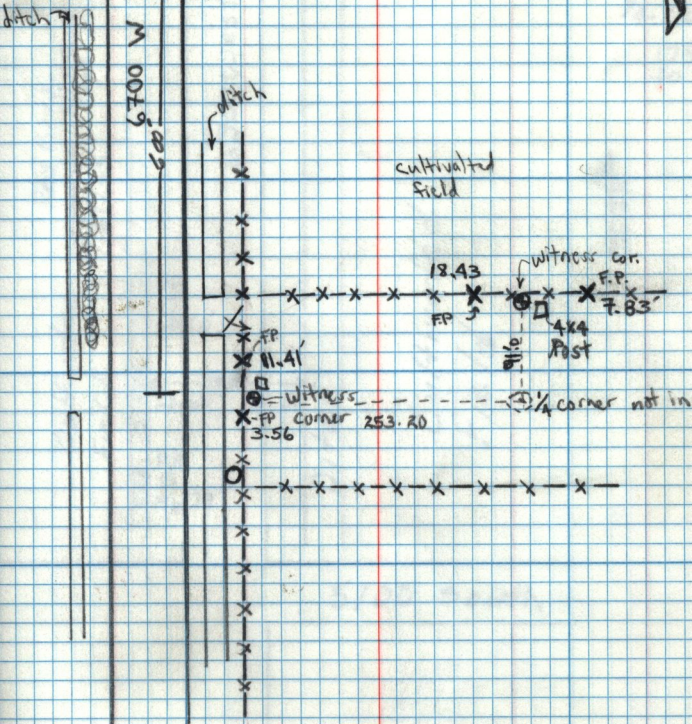 ditch
6700 W
60'
ditch
cultivalted
field
witness cor.
18.43
F.P.
F.P
7.83'
4x4
Post
F.P.
11.41'
Witness
Corner
253.20
1/4 corner not in
FP
3.56